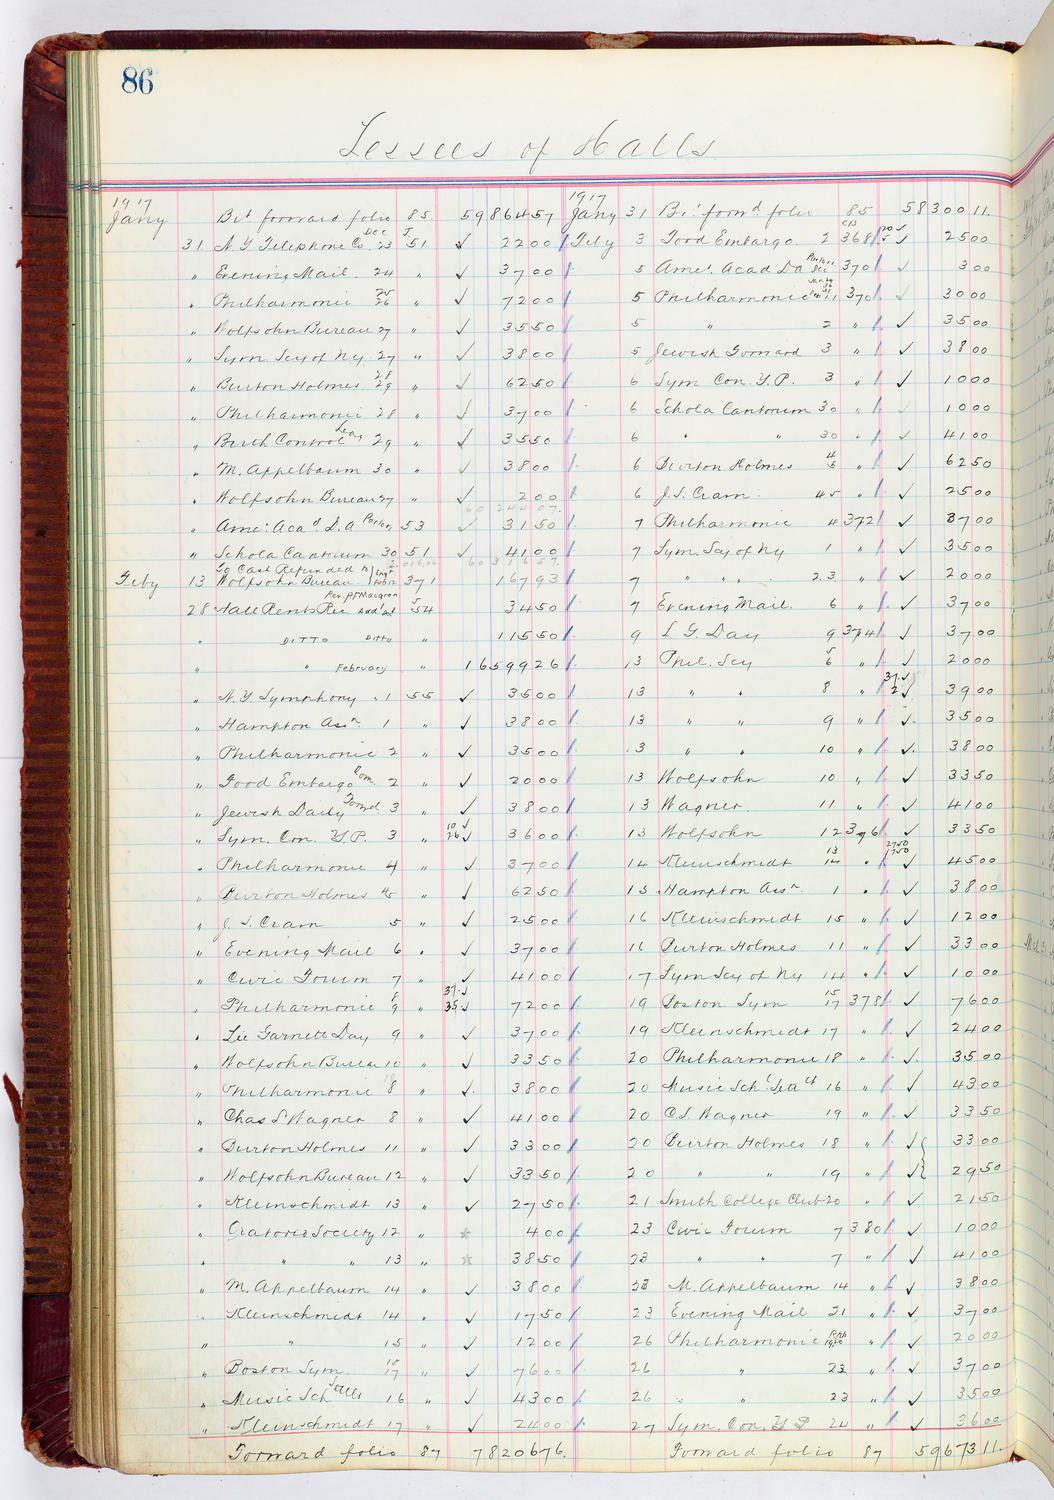 86
Lessees of Halls
1917
Jany Bt forward folio 85 5986457
31 N.Y. Telephone Co Dec 23 J 51 ✓ 2200
" Evening Mail. 24 " ✓ 3700
" Philharmonic 25 26 " ✓ 7200
" Wolfsohn Bureau 27 " ✓ 3550
" Sym. Scy of Ny. 27 " ✓ 3800
" Burton Holmes 28 29 " ✓ 6250
" Philharmonic 28 " ✓ 3700
" Birth Control Leag 29 " ✓ 3550
" M. Appelbaum 30 " ✓ 3800
" Wolfsohn Bureau 27 " ✓ 200
6024407
" Ame. Acad D. A 53 ✓ 3150
" Schola Cantorum 30 51 ✓ 4100
To Cash Refunded
Feby 13 Wolfsohn Bureau. 371 16793
Per. P.F. Macgron
28 Hall Rents Rec Add'nl J 54 3450
" DITTO DITTO " 11550
" " February " 1659926
" N.Y. Symphony " 1 55 ✓ 3500
" Hampton Assn 1 " ✓ 3800
" Philharmonic 2 " ✓ 3500
" Food Embargo Com. 2 " ✓ 2000
" Jewish Daily Forwd. 3 " ✓ 3800
" Sym. Con. Y.P. 3 " 10 ✓ 26 ✓ 3600
" Philharmonic 4 " ✓ 3700
" Burton Holmes 4 5 " ✓ 6250
" J. S. Cram 5 " ✓ 2500
" Evening Mail 6 " ✓ 3700
" Civic Forum 7 " ✓ 4100
" Philharmonic 8 9 " 37 ✓ 35 ✓ 7200
" Lee Garnette Day 9 " ✓ 3700
" Wolfsohn Bureau 10 " ✓ 3350
" Philharmonic 8 " ✓ 3800
" Chas L Wagner 8 " ✓ 4100
" Burton Holmes 11 " ✓ 3300
" Wolfsohn Bureau 12 " ✓ 3350
" Kleinschmidt 13 " ✓ 2750
" Oratorio Society 12 " * 400
" " " 13 " * 3850
" M. Appelbaum 14 " ✓ 3800
" Kleinschmidt 14 " ✓ 1750
" " 15 " ✓ 1200
" Boston Sym. 15 17 " ✓ 7600
" Music Sch Settl 16 " ✓ 4300
" Kleinschmidt 17 " ✓ 2400
Forward folio 87 7820676.
1917
Jany 31 Bt. forw'd folio 85 5830011.
Feby 3 Food Embargo. 2 CB 368 20 ✓ 5 ✓ 2500
5 Ame. Acad Da 370 ✓ 300
5 Philharmonic 370 ✓ 3000
5 " 2 " ✓ 3500
5 Jewish Forward 3 " ✓ 3800
6 Sym Con. Y.P. 3 " ✓ 1000
6 Schola Cantorum 30 " ✓ 1000
6 " " 30 " ✓ 4100
6 Burton Holmes 4 5 " ✓ 6250
6 J. S. Cram. 45 " ✓ 2500
7 Philharmonic 4 372 ✓ 3700
7 Sym. Scy of Ny 1 " ✓ 3500
7 " " " 2.3. " ✓ 2000
7 Evening Mail. 6 " ✓ 3700
9 L G. Day 9 374 ✓ 3700
13 Phil. Scy 5 6 " ✓ 2000
13 " " 8 " 37 ✓ 2 ✓ 3900
13 " " 9 " ✓ 3500
13 " " 10 " ✓ 3800
13 Wolfsohn 10 " ✓ 3350
13 Wagner. 11 " ✓ 4100
13 Wolfsohn 12 376 ✓ 3350
14 Kleinschmidt 13 14 " 2750 1750 ✓ 4500
15 Hampton Assn. 1 " ✓ 3800
16 Kleinschmidt 15 " ✓ 1200
16 Burton Holmes 11 " ✓ 3300
17 Sym Scy of Ny 14 " ✓ 1000
19 Boston Sym 15 17 378 ✓ 7600
19 Kleinschmidt 17 " ✓ 2400
20 Philharmonic 18 " ✓ 3500
20 Music Sch. 16 " ✓ 4300
20 C L Wagner 19 " ✓ 3350
20 Burton Holmes 18 " ✓ 3300
20 " " 19 " ✓ 2950
21 Smith College Club 20 " ✓ 2150
23 Civic Forum 7 380 ✓ 1000
23 " " 7 " ✓ 4100
23 M. Appelbaum 14 " ✓ 3800
23 Evening Mail 21 " ✓ 3700
26 Philharmonic " ✓ 2000
26 " 23 " ✓ 3700
26 " " 23 " ✓ 3500
27 Sym. Con. Y P 24 " ✓ 3600
Forward folio 87 5967311.